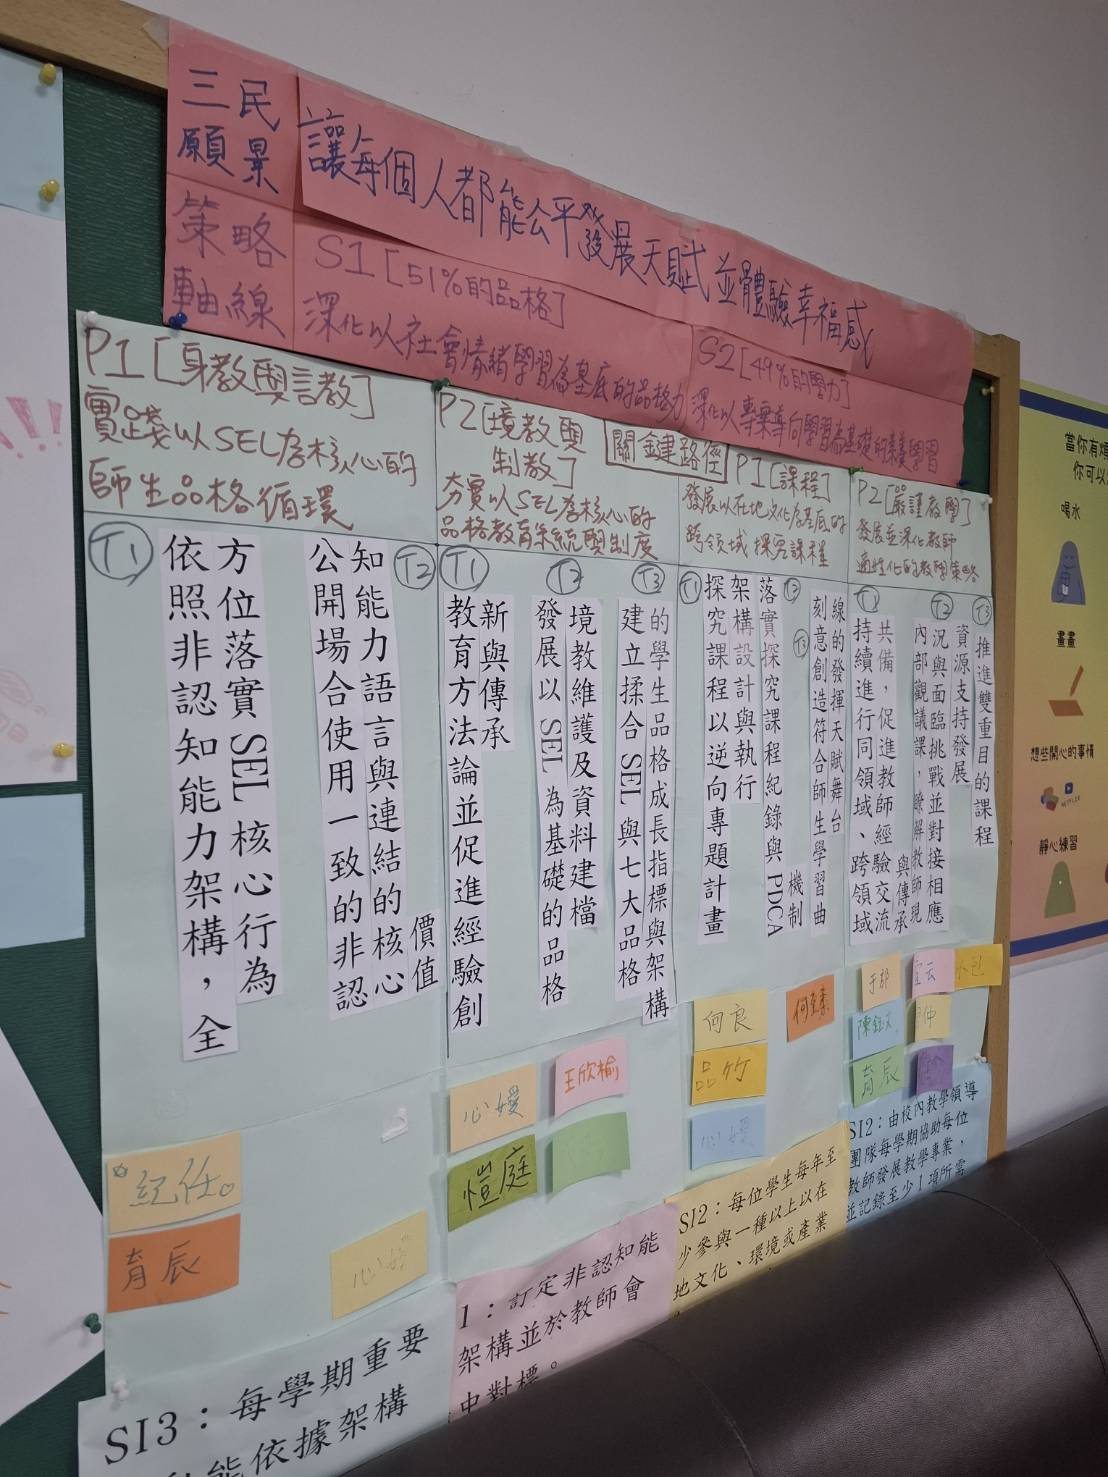 三民
願景
讓每個人都能公平發展天賦並體驗幸福感
策略
軸線
S1[51%的品格]
深化以社會情緒學習為基底的品格力
S2[49%的學力]
深化以專業導向學習為基礎的素養學習
關鍵路徑
P1[身教與言教]
實踐以SEL為核心的
師生品格循環
T1
依照非認知能力架構，全
方位落實SEL核心行為
T2
公開場合使用一致的非認
知能力語言與連結的核心
價值
P2[境教與
制教]
夯實以SEL為核心的
品格教育系統與制度
T1
教育方法論並促進經驗創
新與傳承
T2
發展以 SEL 為基礎的品格
境教維護及資料建檔
T3
建立揉合 SEL 與七大品格
的學生品格成長指標與架構
P1[課程]
發展以在地文化為基底的
跨領域探究課程
T1
探究課程以逆向專題計畫
架構設計與執行
T2
落實探究課程紀錄與 PDCA
機制
T3
刻意創造符合師生學習曲
線的發揮天賦舞台
P2[嚴謹教學]
發展並深化教師
適性化的教學策略
T1
持續進行同領域、跨領域
共備，促進教師經驗交流
與傳承
T2
內部觀議課，瞭解教師現
況與面臨挑戰並對接相應
資源支持發展
T3
推進雙重目的課程
紀任。
育辰
心媛
心媛
王欣榆
愷庭
何良
品竹
心媛
于郡
小包
育辰
SI3：每學期重要
能依據架構
1：訂定非認知能
架構並於教師會
中對標。
SI2：每位學生每年至
少參與一種以上以在
地文化、環境或產業
SI2：由校內教學領導
團隊每學期協助每位
教師發展教學專業，
並記錄至少1項所需
當你有煩
你可以
喝水
畫畫
想些開心的事情
NETFLIX
靜心練習